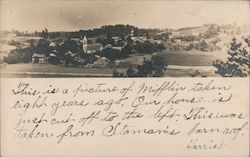 This is a picture of Mifflin taken
eight years ago. Our house is
just cut off to the left. This was
taken from Stoman's barn not
Harriet.